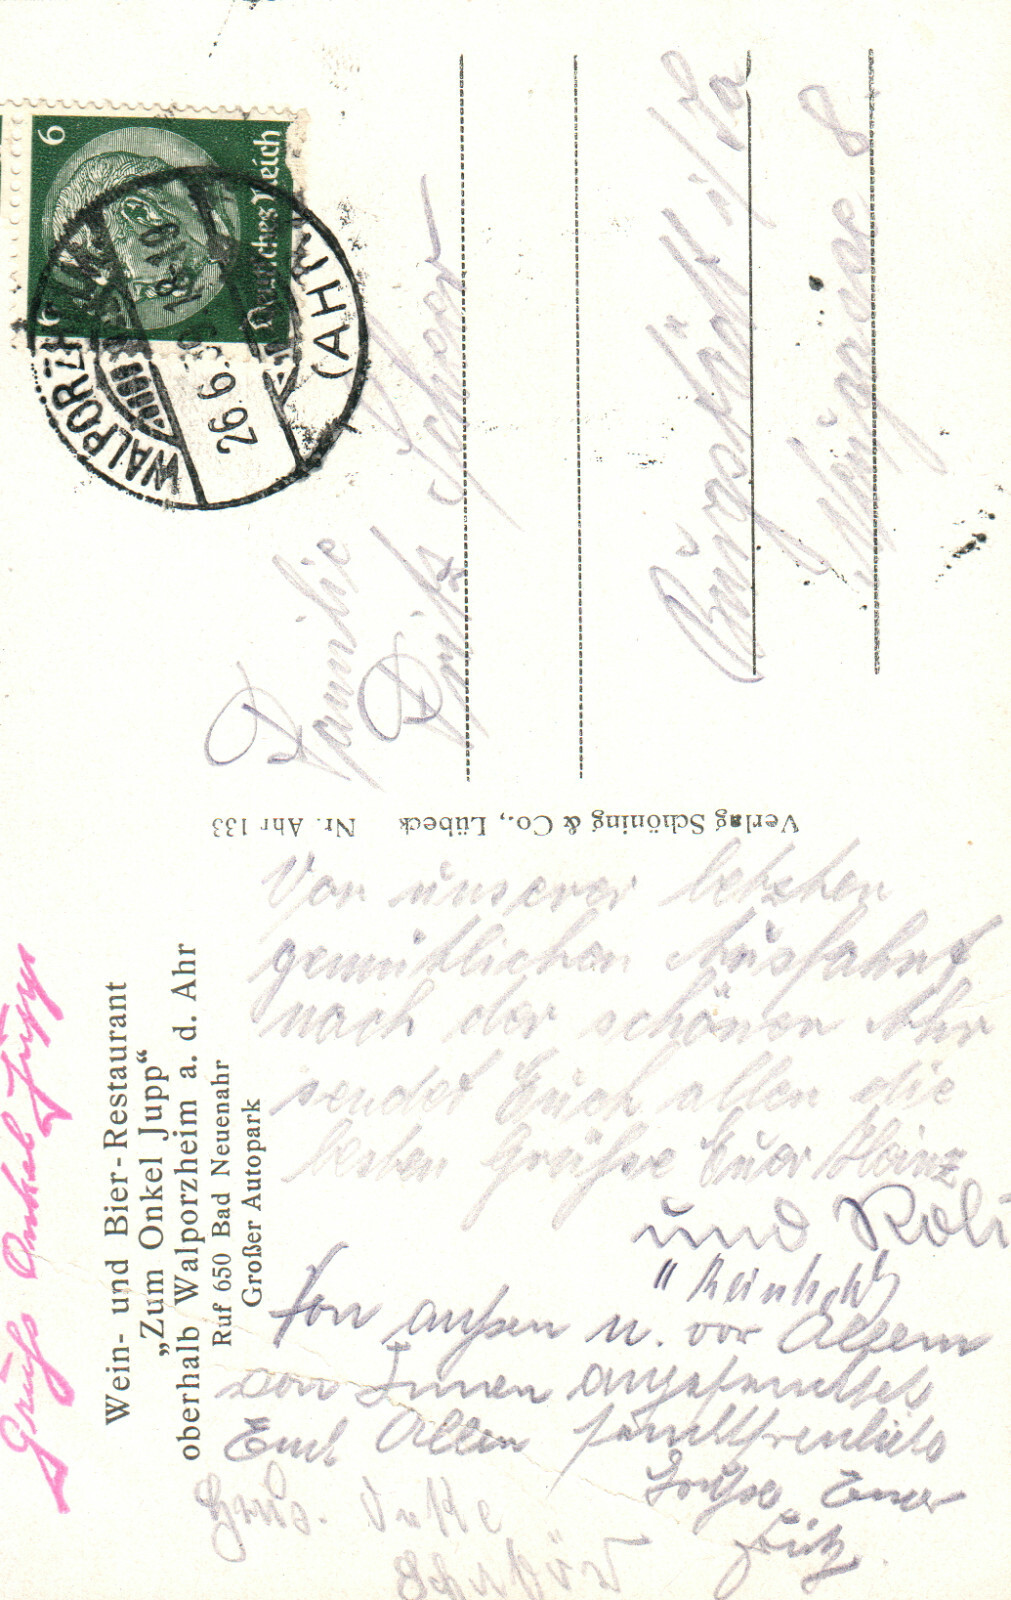 6
Deutsches Reich
WALPORZHEIM
26.6.39 18-19
(AHR)
Familie
Fritz Scherer
Burgstädt i/Sa
8
Verlag Schöning & Co., Lübeck Nr. Ahr 133
Wein- und Bier-Restaurant
„Zum Onkel Jupp“
oberhalb Walporzheim a. d. Ahr
Ruf 650 Bad Neuenahr
Großer Autopark
Gruß Onkel Jupp
Von unserer letzten
gemütlichen Ausfahrt
nach der schönen Ahr
sendet Euch allen die
besten Grüße Euer Heinz
und Roli
" Reinhold
Von außen u. vor Allem
von Innen angefeuchtet
Euch Allen
Grüße Euer
Fritz